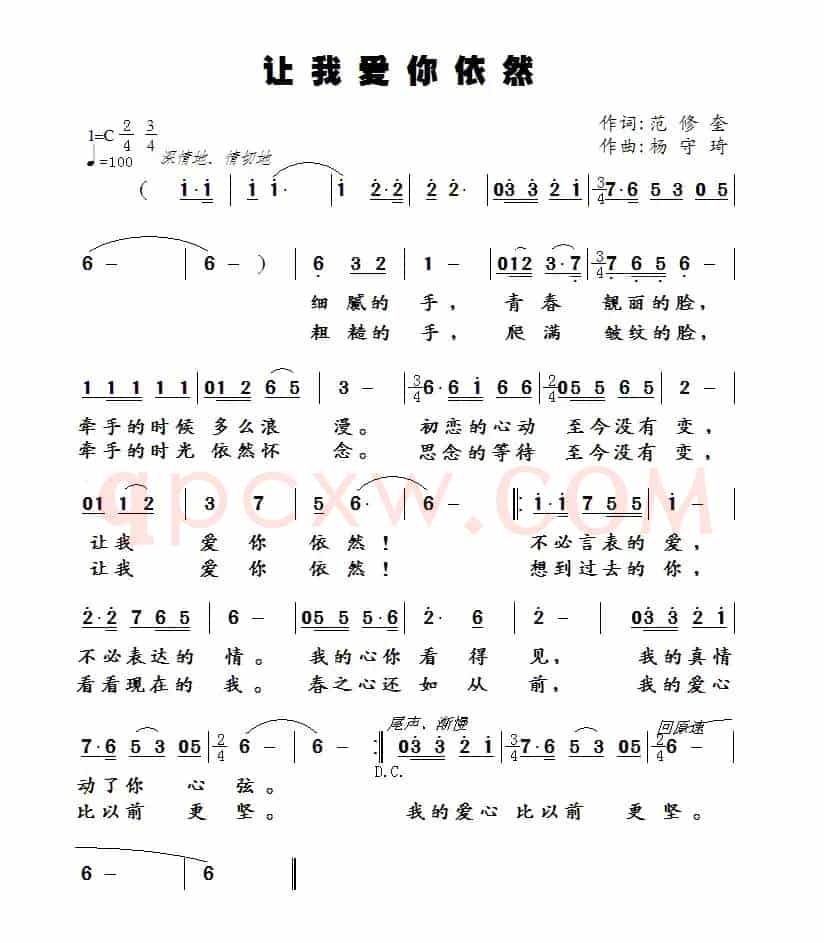 让我爱你依然
1=C 2/4 3/4
作词:范修奎
♩=100 深情地、情切地
作曲:杨守琦
( i·i | i i· | i 2·2 | 2·2 | 033 2 i | 3/4 7·6 5 3 0 5
6 – | 6 – ) | 6 3 2 | 1 – | 012 3·7 | 3/4 7 6 5 6 –
细腻的手，青春靓丽的脸，
粗糙的手，爬满皱纹的脸，
1 1 1 1 1 | 01 2 6 5 | 3 – | 3/4 6·6 i 6 6 | 2/4 05 5 6 5 | 2 –
牵手的时候多么浪漫。初恋的心动至今没有变，
牵手的时光依然怀念。思念的等待至今没有变，
01 1 2 | 3 7 | 5 6· | 6 – ‖: i·i 7 5 5 | i –
qpcxw.COM
让我爱你依然！不必言表的爱，
让我爱你依然！想到过去的你，
2·2 7 6 5 | 6 – | 05 5 5·6 | 2· 6 | 2 – | 03 3 2 i
不必表达的情。我的心你看得见，我的真情
看看现在的我。春之心还如从前，我的爱心
尾声、渐慢 回原速
7·6 5 3 05 | 2/4 6 – | 6 – :‖ 03 3 2 i | 3/4 7·6 5 3 05 | 2/4 6 –
D.C.
动了你心弦。
比以前更坚。我的爱心比以前更坚。
6 – | 6 ‖